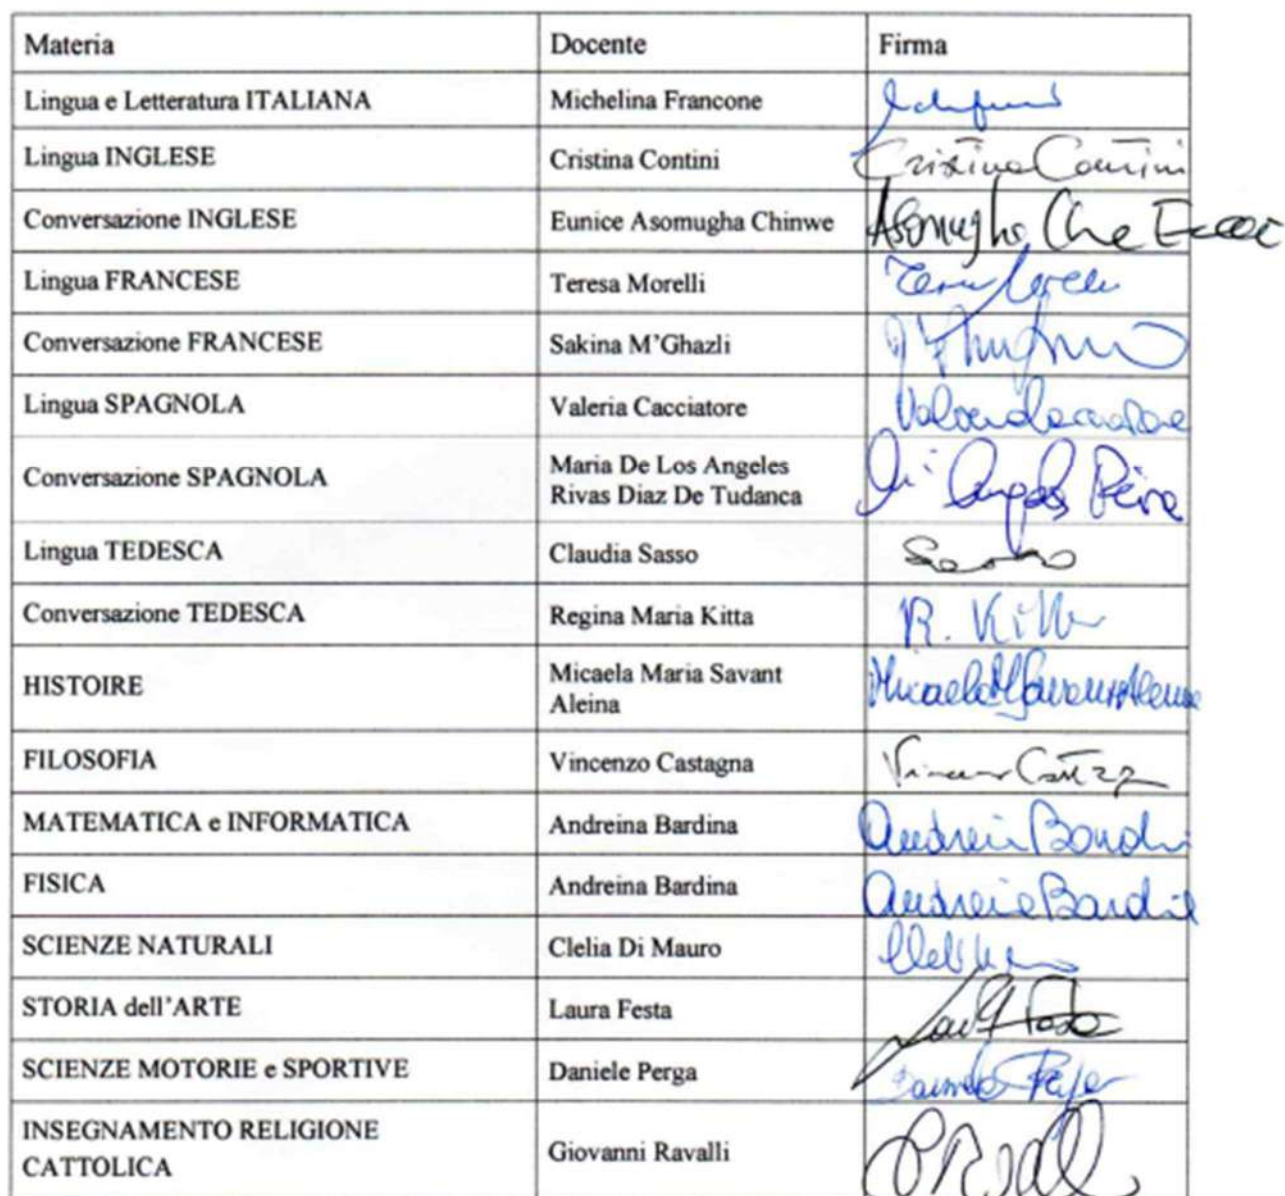 Materia Docente Firma
Lingua e Letteratura ITALIANA Michelina Francone
Lingua INGLESE Cristina Contini Cristina Contini
Conversazione INGLESE Eunice Asomugha Chinwe Asomugha
Lingua FRANCESE Teresa Morelli
Conversazione FRANCESE Sakina M'Ghazli
Lingua SPAGNOLA Valeria Cacciatore
Conversazione SPAGNOLA Maria De Los Angeles
Rivas Diaz De Tudanca
Lingua TEDESCA Claudia Sasso
Conversazione TEDESCA Regina Maria Kitta R.
HISTOIRE Micaela Maria Savant
Aleina
FILOSOFIA Vincenzo Castagna
MATEMATICA e INFORMATICA Andreina Bardina
FISICA Andreina Bardina
SCIENZE NATURALI Clelia Di Mauro
STORIA dell'ARTE Laura Festa
SCIENZE MOTORIE e SPORTIVE Daniele Perga
INSEGNAMENTO RELIGIONE
CATTOLICA Giovanni Ravalli